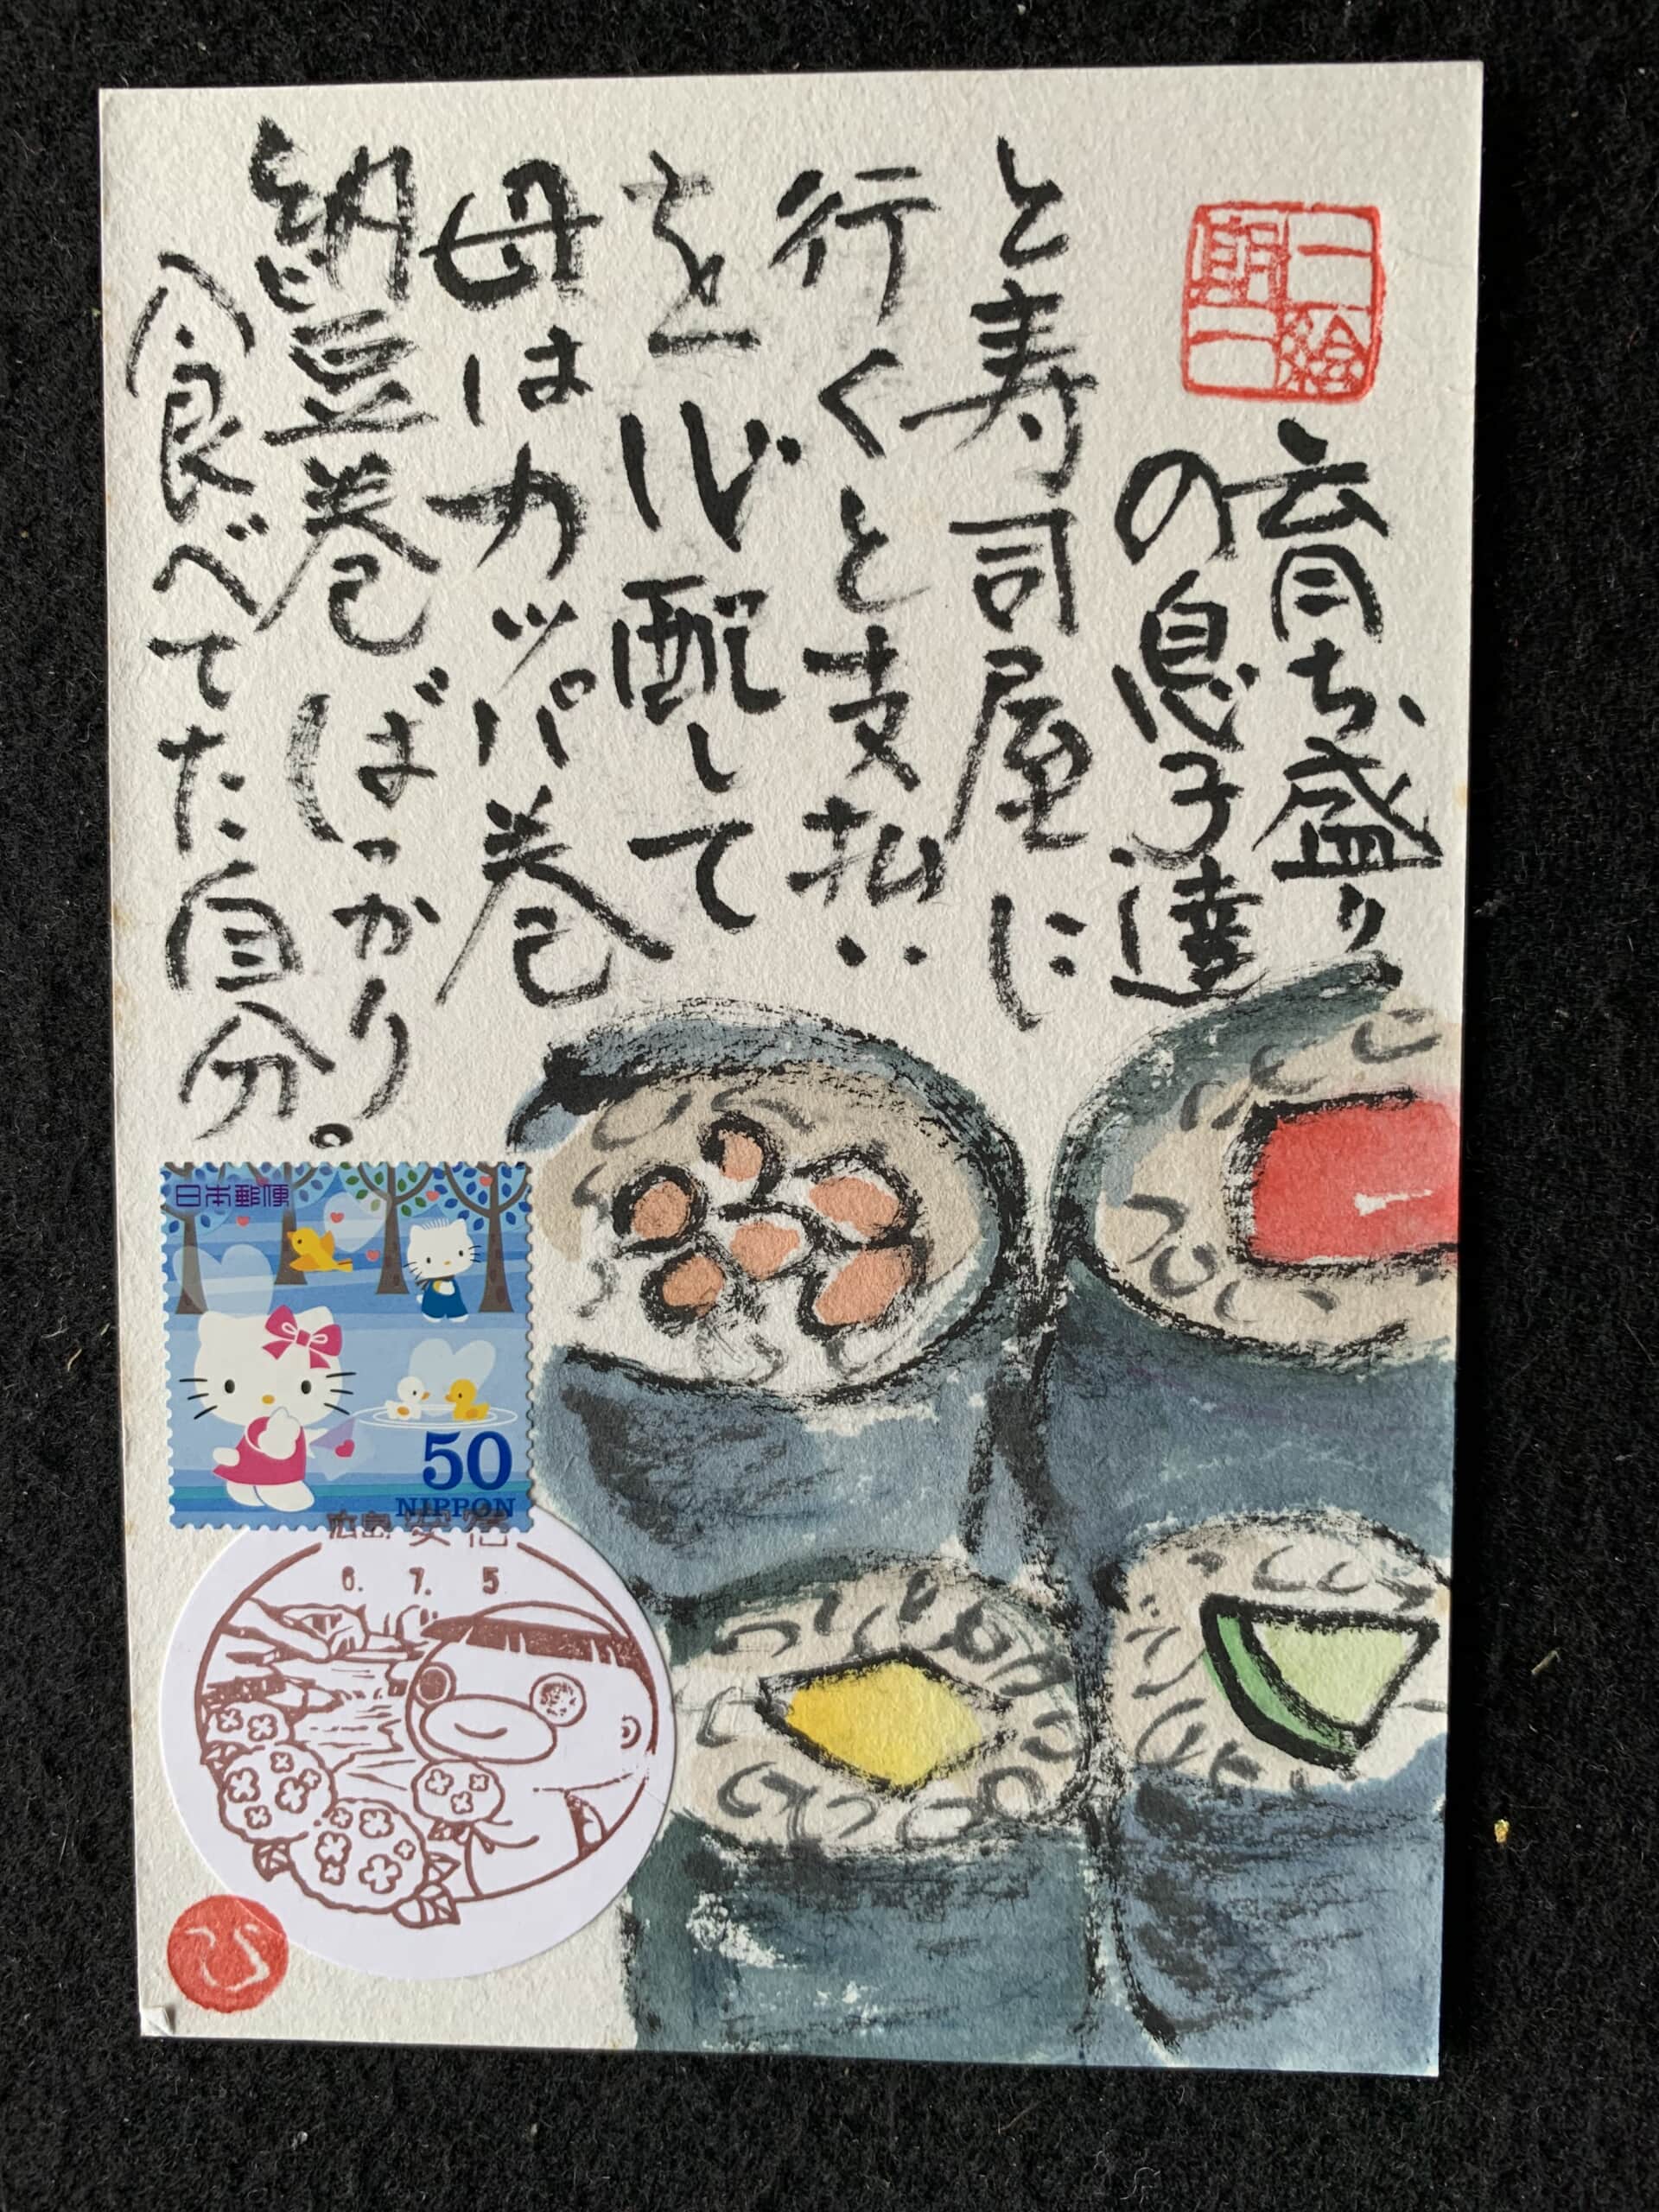 育ち盛り
の息子達
と寿司屋に
行くと支払い
を心配して
母はカッパ巻
納豆巻ばっかり。
食べてた自分
日本郵便
50
NIPPON
広島
6. 7. 5
ひ